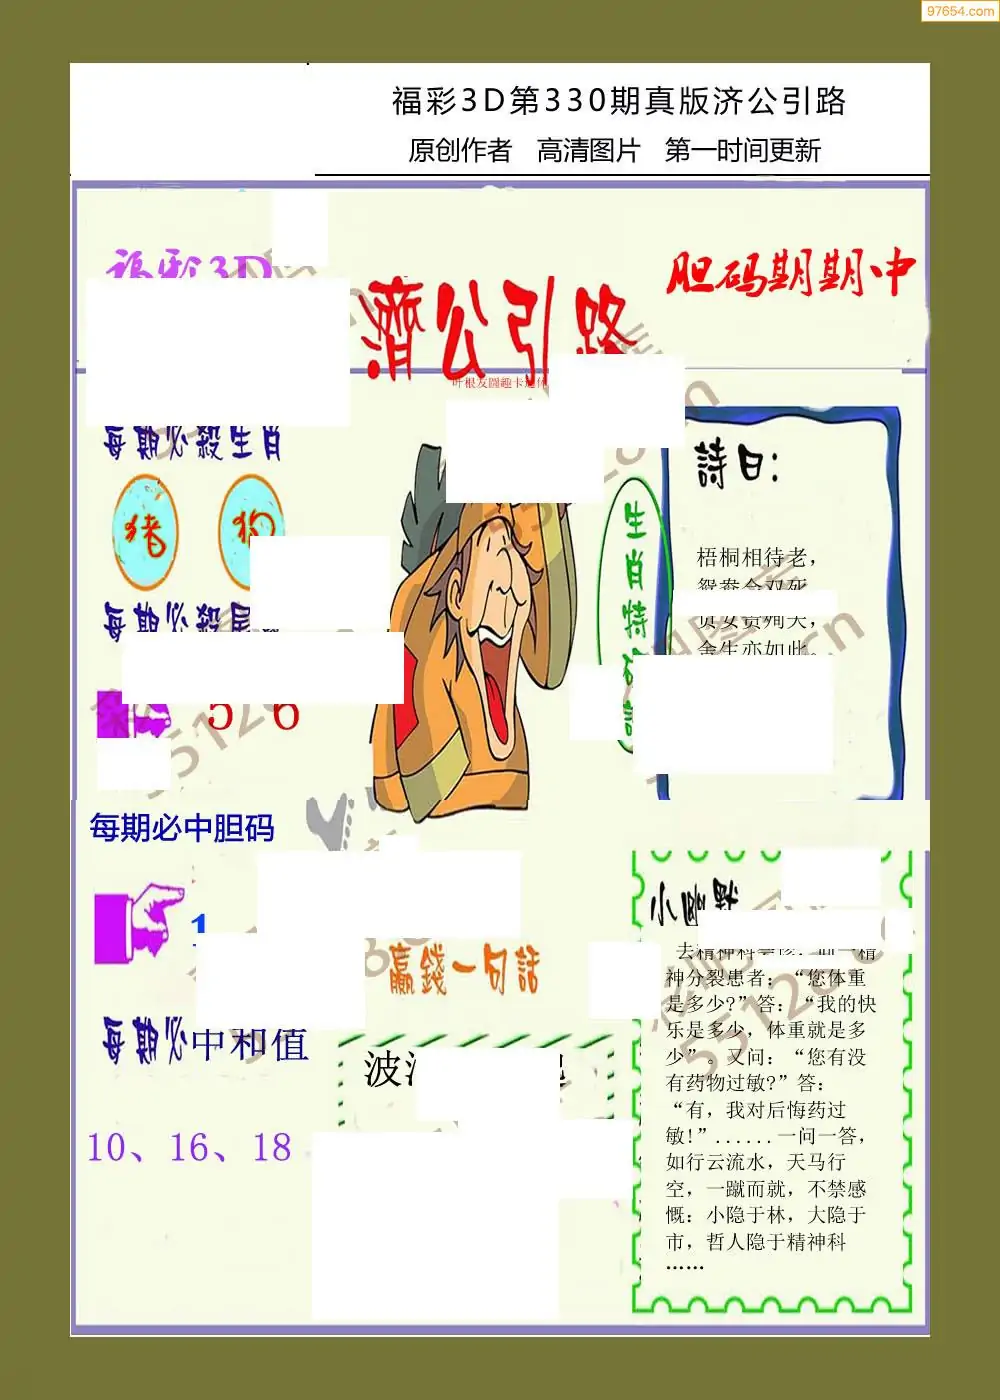 97654.com
福彩3D第330期真版济公引路
原创作者 高清图片 第一时间更新
福彩3D
濟公引路
胆码期期中
叶根友圆趣卡通体
每期必殺生肖
猪 狗
每期必殺尾
5 6
生肖特码詩
詩曰:
梧桐相待老，
鸳鸯会双死
贞女贵殉夫，
舍生亦如此。
每期必中胆码
1
赢錢一句話
每期必中和值
10、16、18
波
小幽默
去精神科会诊，问一精
神分裂患者：“您体重
是多少?”答：“我的快
乐是多少，体重就是多
少”。又问：“您有没
有药物过敏?”答：
“有，我对后悔药过
敏!”......一问一答，
如行云流水，天马行
空，一蹴而就，不禁感
慨：小隐于林，大隐于
市，哲人隐于精神科
……